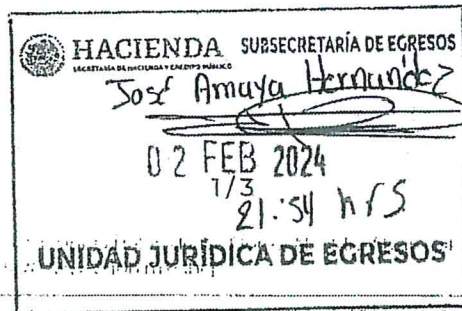 HACIENDA SUBSECRETARÍA DE EGRESOS
SECRETARÍA DE HACIENDA Y CRÉDITO PÚBLICO
José Amaya Hernández
02 FEB 2024
1/3
21:54 hrs
UNIDAD JURÍDICA DE EGRESOS